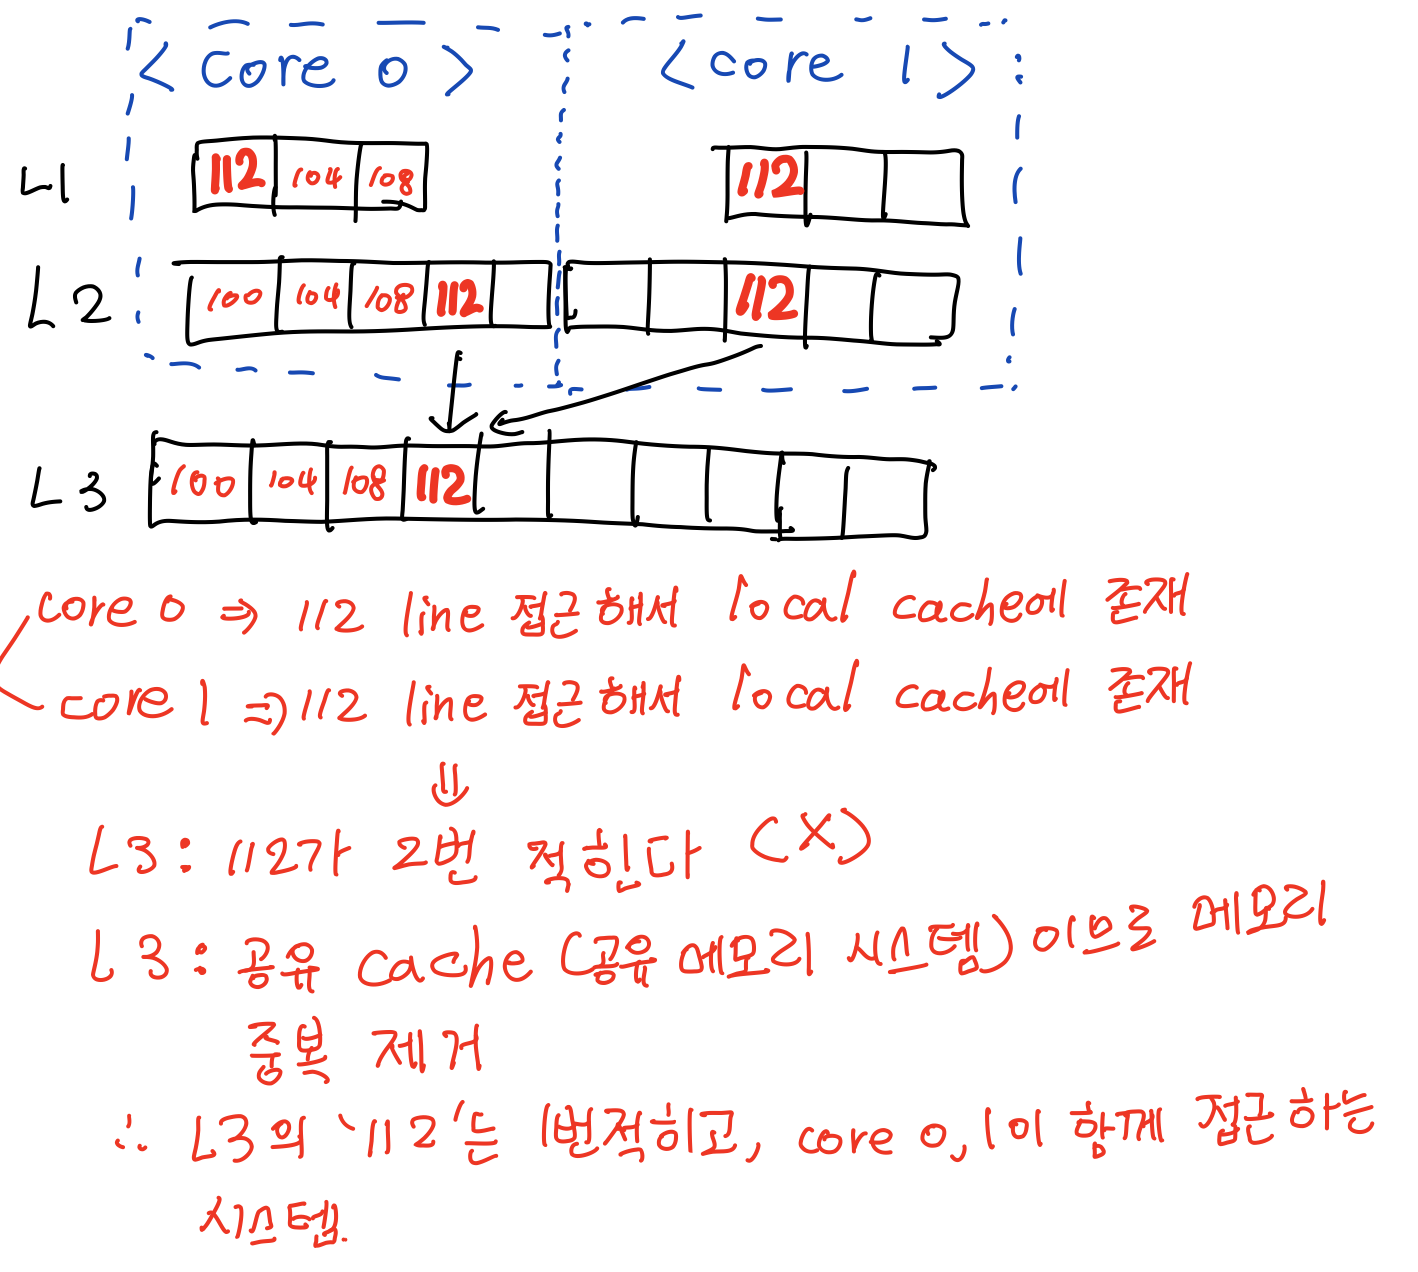 <core 0> <core 1>
L1 112 104 108 112
L2 100 104 108 112 112
L3 100 104 108 112
core 0 ⇒ 112 line 접근해서 local cache에 존재
core 1 ⇒ 112 line 접근해서 local cache에 존재
⇓
L3 : 112가 2번 적힌다 (X)
L3 : 공유 cache (공유 메모리 시스템) 이므로 메모리
중복 제거
∴ L3의 '112'는 1번적히고, core 0, 1이 함께 접근하는
시스템.